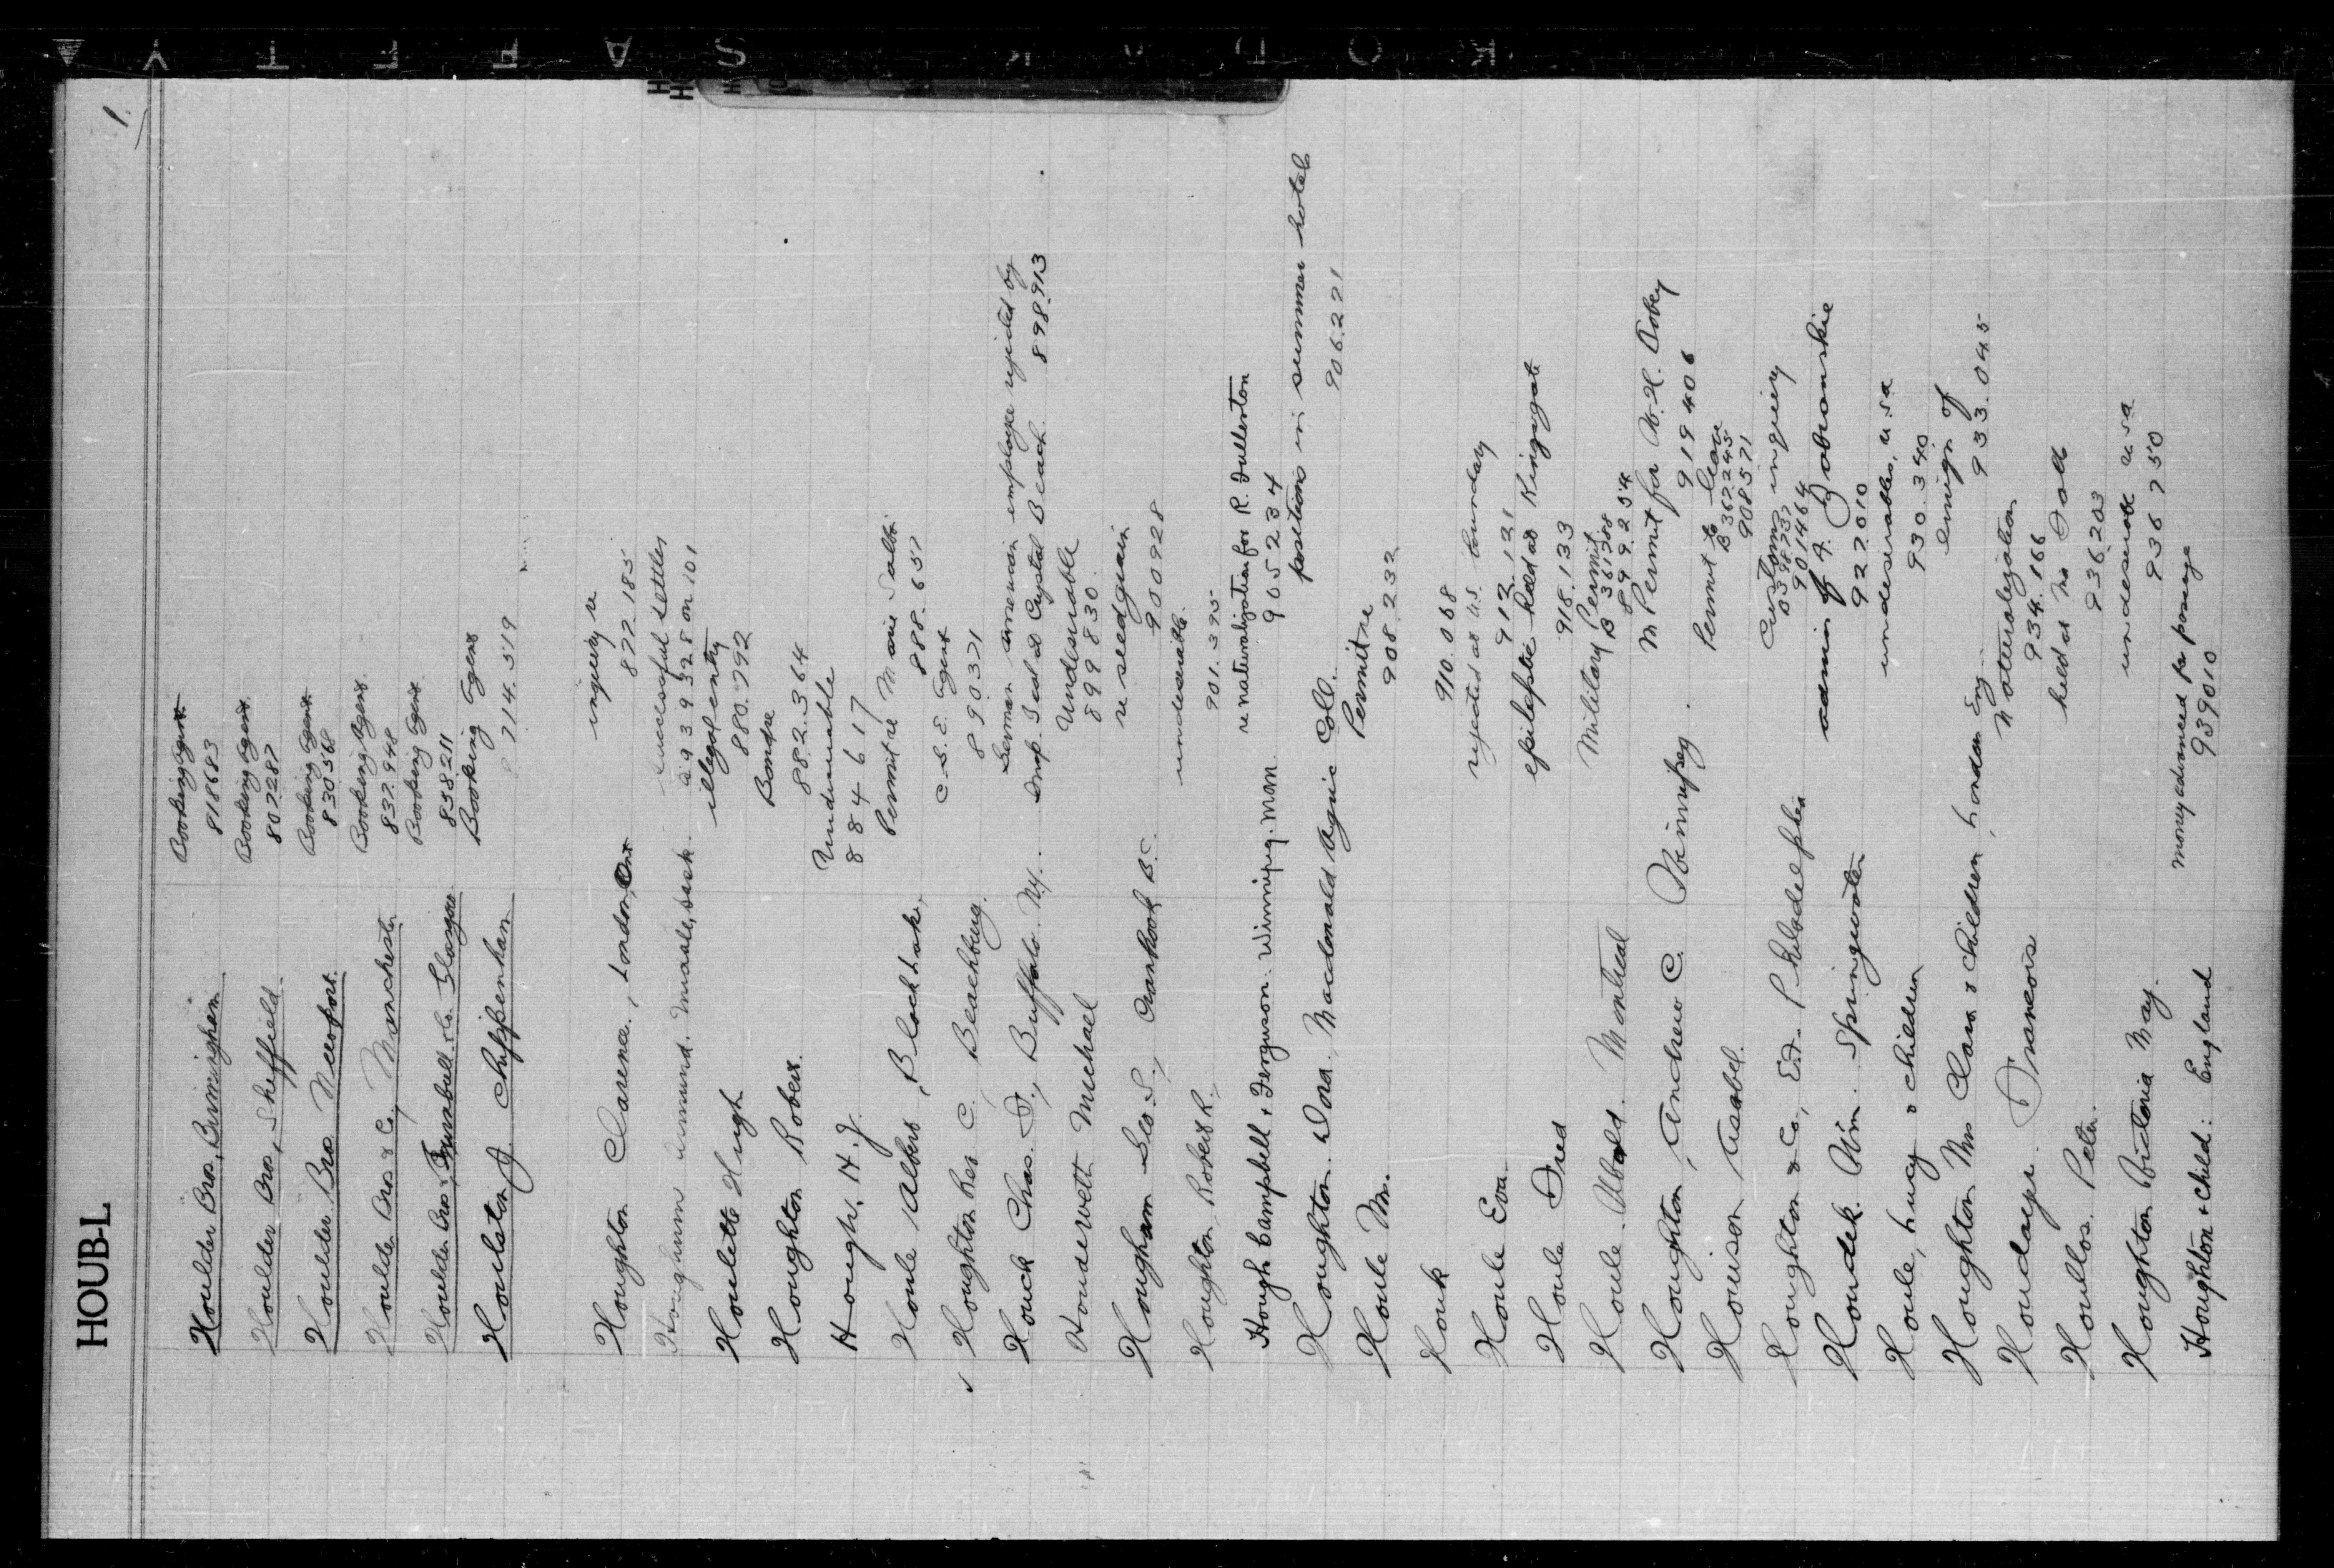 HOUB-L
1
Houlder Bros, Birmingham Booking agent
818683
Houlder Bros, Sheffield. Booking agent
807287
Houlder Bros Newport. Booking agent
830568
Houlder Bros & Co, Manchester Booking Agent
837.948
Houlder Bros, Turnbull & Co. Glasgow Booking Agent
858211
Houlston J. Chippenham Booking Agent
714.519
Houghton Clarence, London, Ont inquiry re
877.185
successful settler
a 9 3 9 3 2 8 on 101
Houlette Hugh illegal entry
880.792
Houghton Robert. Bond re
882.364
Hough, H. J. Undesirable
884617
Houle Albert, Black Lake, Permit re Marie
888.657
Houghton Rev C, Beachburg. C.S.E. Agent
890371
Houck Chas. F., Buffalo N.Y. German American employee rejected by
Insp. Teal at Crystal Beach. 898.913
Michael Undesirable
899830.
Hougham Geo. S., Cranbrook B.C. re seed grain
900928
Houghton Robert R. undesirable.
901.395
Hough, Campbell & Ferguson. Winnipeg. Man. re naturalization for R. Fullerton
905234
Houghton. Dora, Macdonald Agric Coll. position in summer hotel
906.221
Houle M. Permit re
908.232
Houk
910.068
Houle Eva rejected at U.S. boundary
912.121
Houle Fred epileptic held at Kingsgate
918.133
Houle. Montreal Military Permit.
B 361788
899.254
Houghton, Andrew C. Winnipeg. Permit for W.H.
919406
Houison, Permit to leave
B 367245
908571
Houghton & Co, Philadelphia Customs inquiry
901464
Houdek Wm. Springwater admin of A.
927.010
Houle, Lucy & children undesirables, USA
930.340
Houghton Mrs Clara & children, London Eng. emigr. of
933.045
Francois Naturalization
934.166
Houllos. Peter. held at
936203
Houghton Victoria May. undesirable USA
936750
Houghton & child: England money advanced for passage
939010